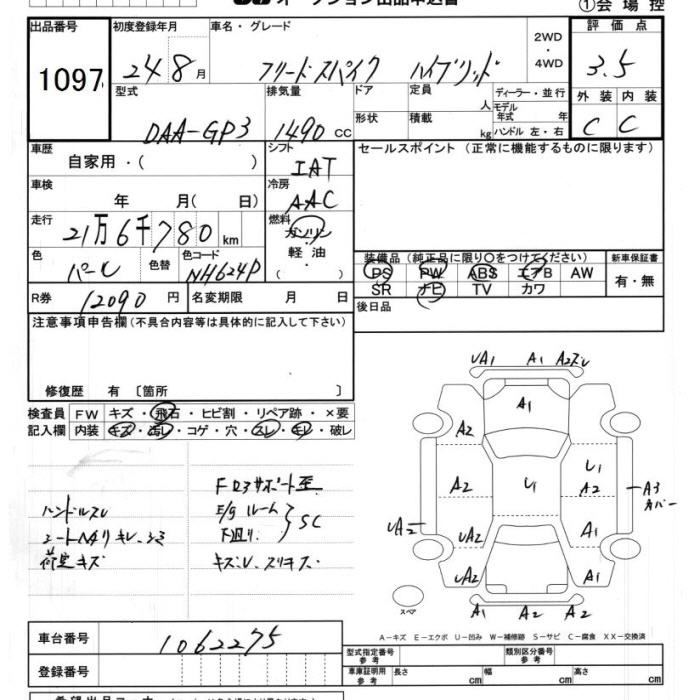 オークション出品申込書
①会場控
出品番号 初度登録年月 車名・グレード 2WD・4WD 評価点
1097 24 8月 フリードスパイク ハイブリッド 3.5
型式 排気量 ドア 定員 人 ディーラー・並行 外装 内装
DAA-GP3 1490 cc 形状 積載 kg モデル年式 年 ハンドル 左・右 C C
車歴 自家用・( ) シフト IAT セールスポイント(正常に機能するものに限ります)
車検 年 月( 日) 冷房 AAC
走行 21万6千780 km 燃料 ガソリン・軽油・( )
色 パール 色替 色コード NH624P
装備品(純正品に限り○をつけてください) 新車保証書
PS PW ABS エアB AW 有・無
SR ナビ TV カワ
R券 12090 円 名変期限 月 日 後日品
注意事項申告欄(不具合内容等は具体的に記入して下さい)
修復歴 有 〔箇所 〕
検査員 FW キズ・飛石・ヒビ割・リペア跡・×要
記入欄 内装 キズ・汚レ・コゲ・穴・スレ・キレ・破レ
ハンドルスレ
荷室キズ
F ロアサポート
E/gルーム
下廻り SC
UA1 A1 A2
A1
A2
A2 U1 U1 A2 A3 カバー
UA2 UA2 A1
UA2 A1
スペア A1 A2 A2
A-キズ E-エクボ U-凹み W-補修跡 S-サビ C-腐食 XX-交換済
車台番号 1062275
登録番号
型式指定番号 参考 類別区分番号 参考
車庫証明用 参考 長さ cm 幅 cm 高さ cm